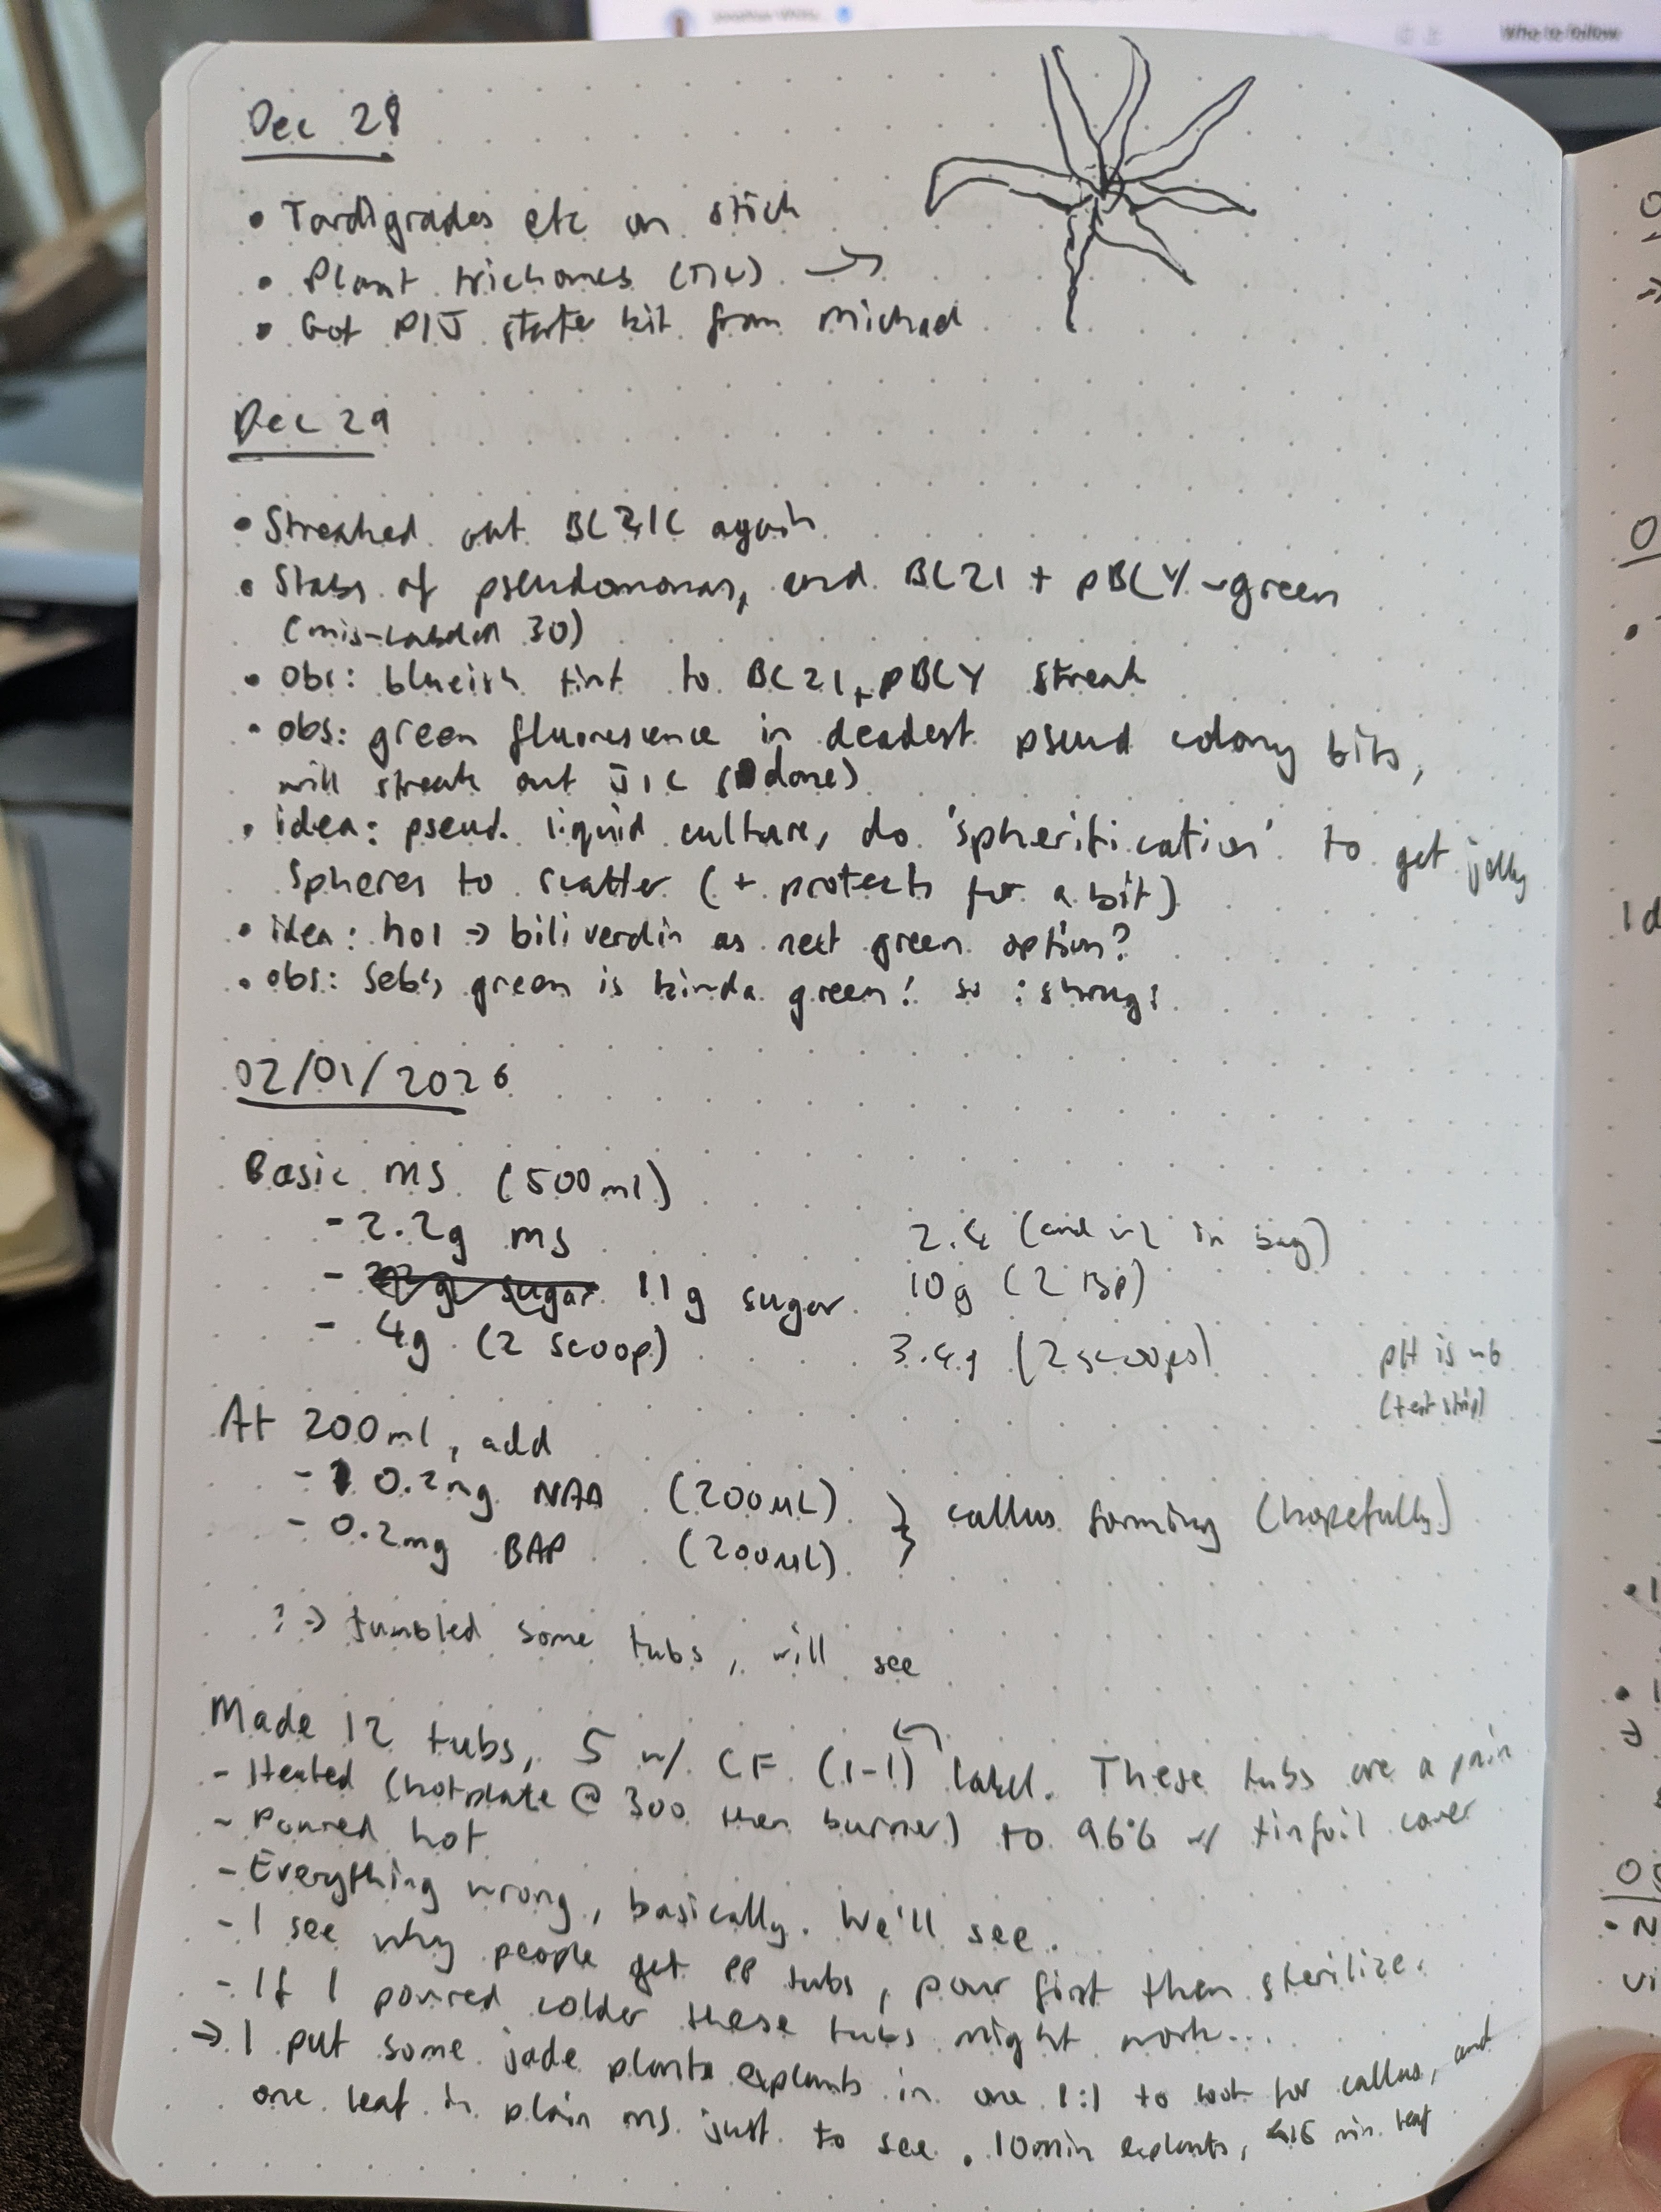 Who to follow
Dec 28
• Tardigrades etc on stick
• Plant trichomes (pic) →
• Got DIJ starter kit from Michael
Dec 29
• Streaked out BL21C again
• Stabs of pseudomonas, and BL21 + pBLY-green
(mis-labeled 30)
• Obs: blueish tint to BL21+pBLY streak
• obs: green fluorescence in deadest pseud colony bits,
will streak out JIC (done)
• idea: pseud. liquid culture, do 'spherification' to get jelly
spheres to scatter (+ protects for a bit)
• idea: ho1 → biliverdin as next green option?
• obs: Seb's green is kinda green! so :shrug:
02/01/2026
Basic MS (500ml)
- 2.2g MS 2.4 (and in bag)
- 11g sugar 10g (2 tsp)
- 4g (2 scoop) 3.4g (2 scoops)
pH is ~6
(test strip)
At 200ml, add
- 0.2mg NAA (200uL) } callus forming (hopefully)
- 0.2mg BAP (200uL)
? → fumbled some tubs, will see
Made 12 tubs, 5 w/ CF (1-1) ← label. These tubs are a pain
- Heated (hotplate @ 300 then burner) to 96°C w/ tinfoil cover
- Poured hot
- Everything wrong, basically. We'll see.
- I see why people get PP tubs, pour first then sterilize.
- If I poured colder these tubs might work...
→ I put some jade plants explants in one 1:1 to look for callus, and
one leaf in plain MS just to see. 10min explants, 15 min leaf